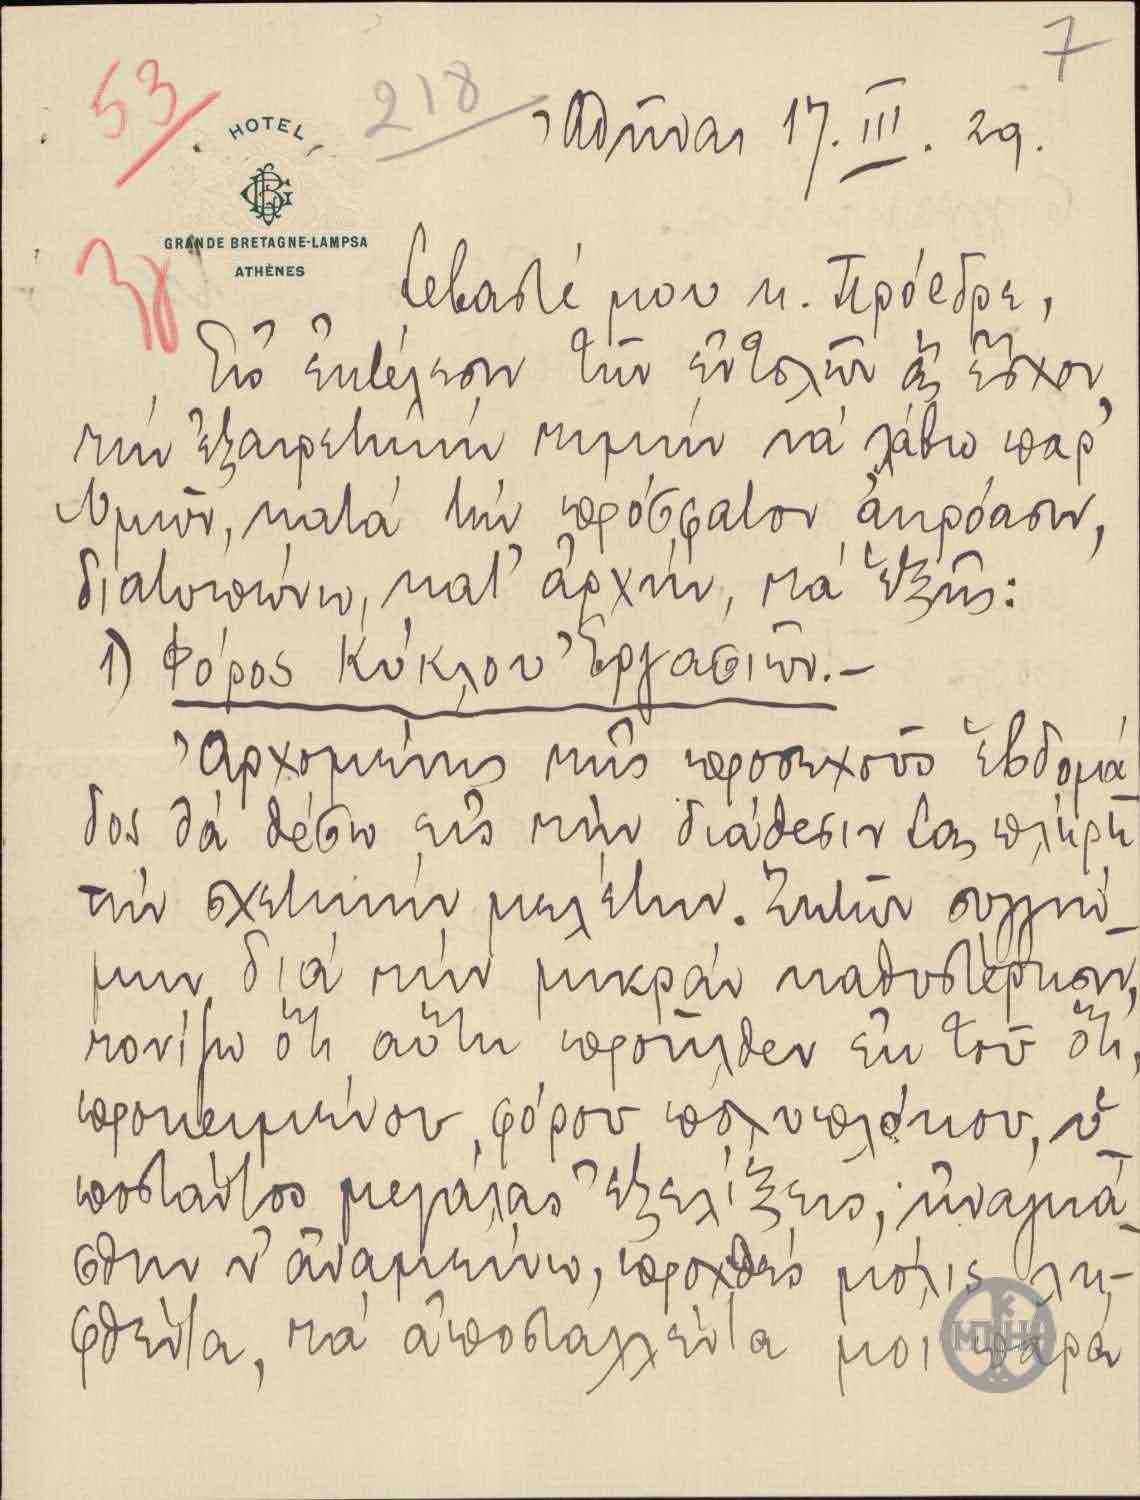 7
53
218
HOTEL
GB
GRANDE BRETAGNE-LAMPSA
ATHÈNES
Ἀθῆναι 17.III.29.
Σεβαστέ μου κ. Πρόεδρε,
Εἰς ἐκτέλεσιν τῶν ἐντολῶν ἃς ἔσχον
τὴν ἐξαιρετικὴν τιμὴν νὰ λάβω παρ'
Ὑμῶν, κατὰ τὴν πρόσφατον ἀκρόασιν,
διατυπώνω, κατ' ἀρχήν, τὰ ἑξῆς:
1) Φόρος Κύκλου Ἐργασιῶν.-
Ἀρχομένης τῆς προσεχοῦς ἑβδομά-
δος θὰ θέσω εἰς τὴν διάθεσίν Σας πλήρη
τὴν σχετικὴν μελέτην. Ζητῶν συγγνώ-
μην διὰ τὴν μικρὰν καθυστέρησιν,
τονίζω ὅτι αὕτη προῆλθεν ἐκ τοῦ ὅτι,
προκειμένου φόρου πολυπλόκου, ὑ-
ποστάντος μεγάλας ἐξελίξεις, ἠναγκά-
σθην ν' ἀναμείνω, προχθὲς μόλις λη-
φθέντα, τὰ ἀποσταλέντα μοι παρὰ
ΜΠΗΚ